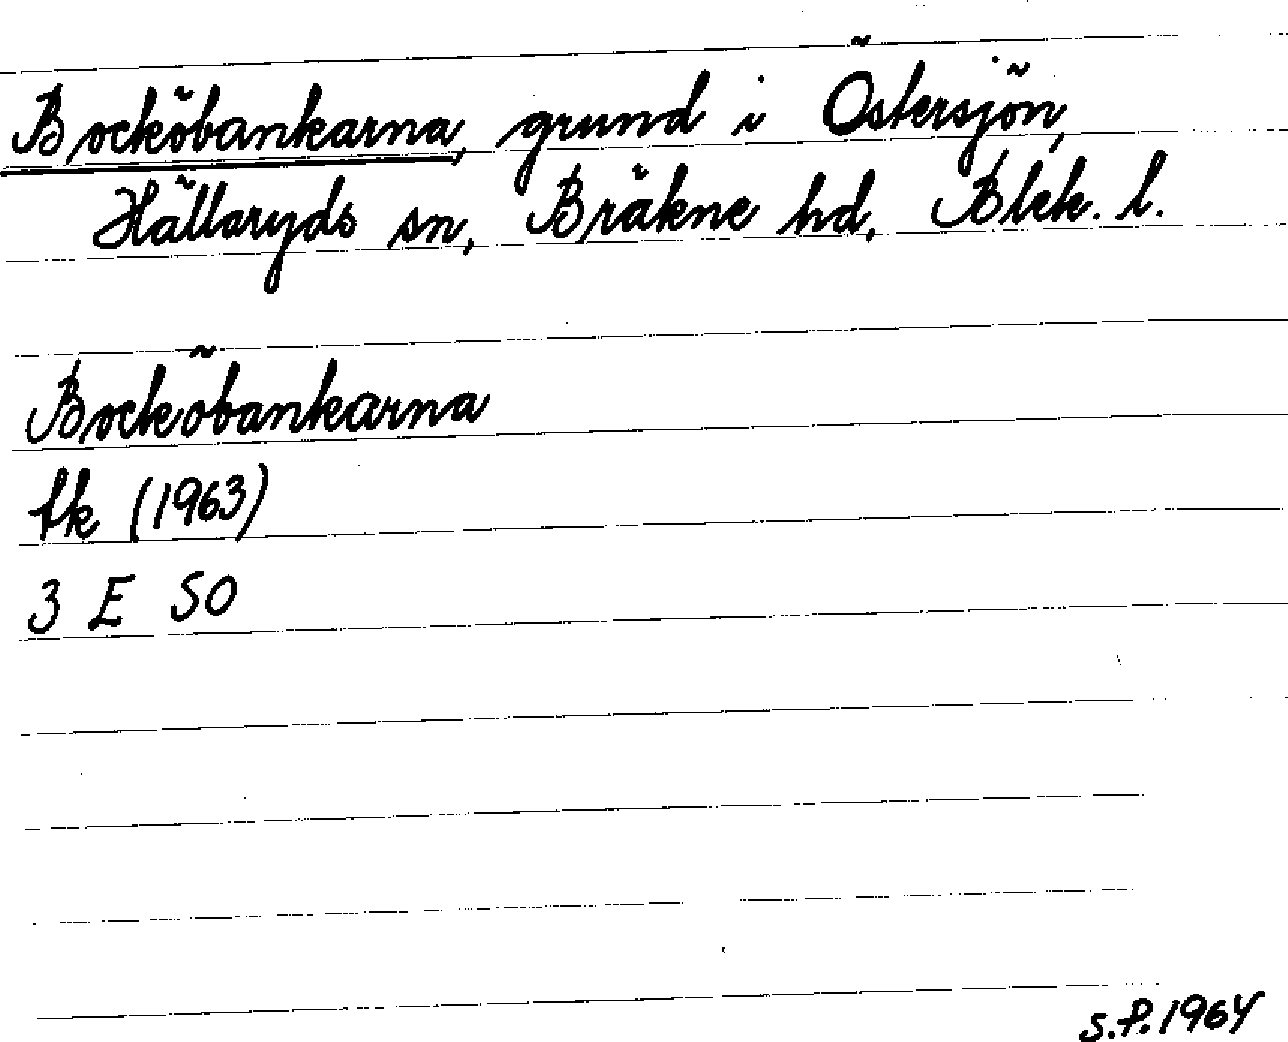 Bocköbankarna, grund i Östersjön,
Hällaryds sn, Bräkne hd, Blek. l.
Bocköbankarna
fk (1963)
3 E SO
S.P. 1964